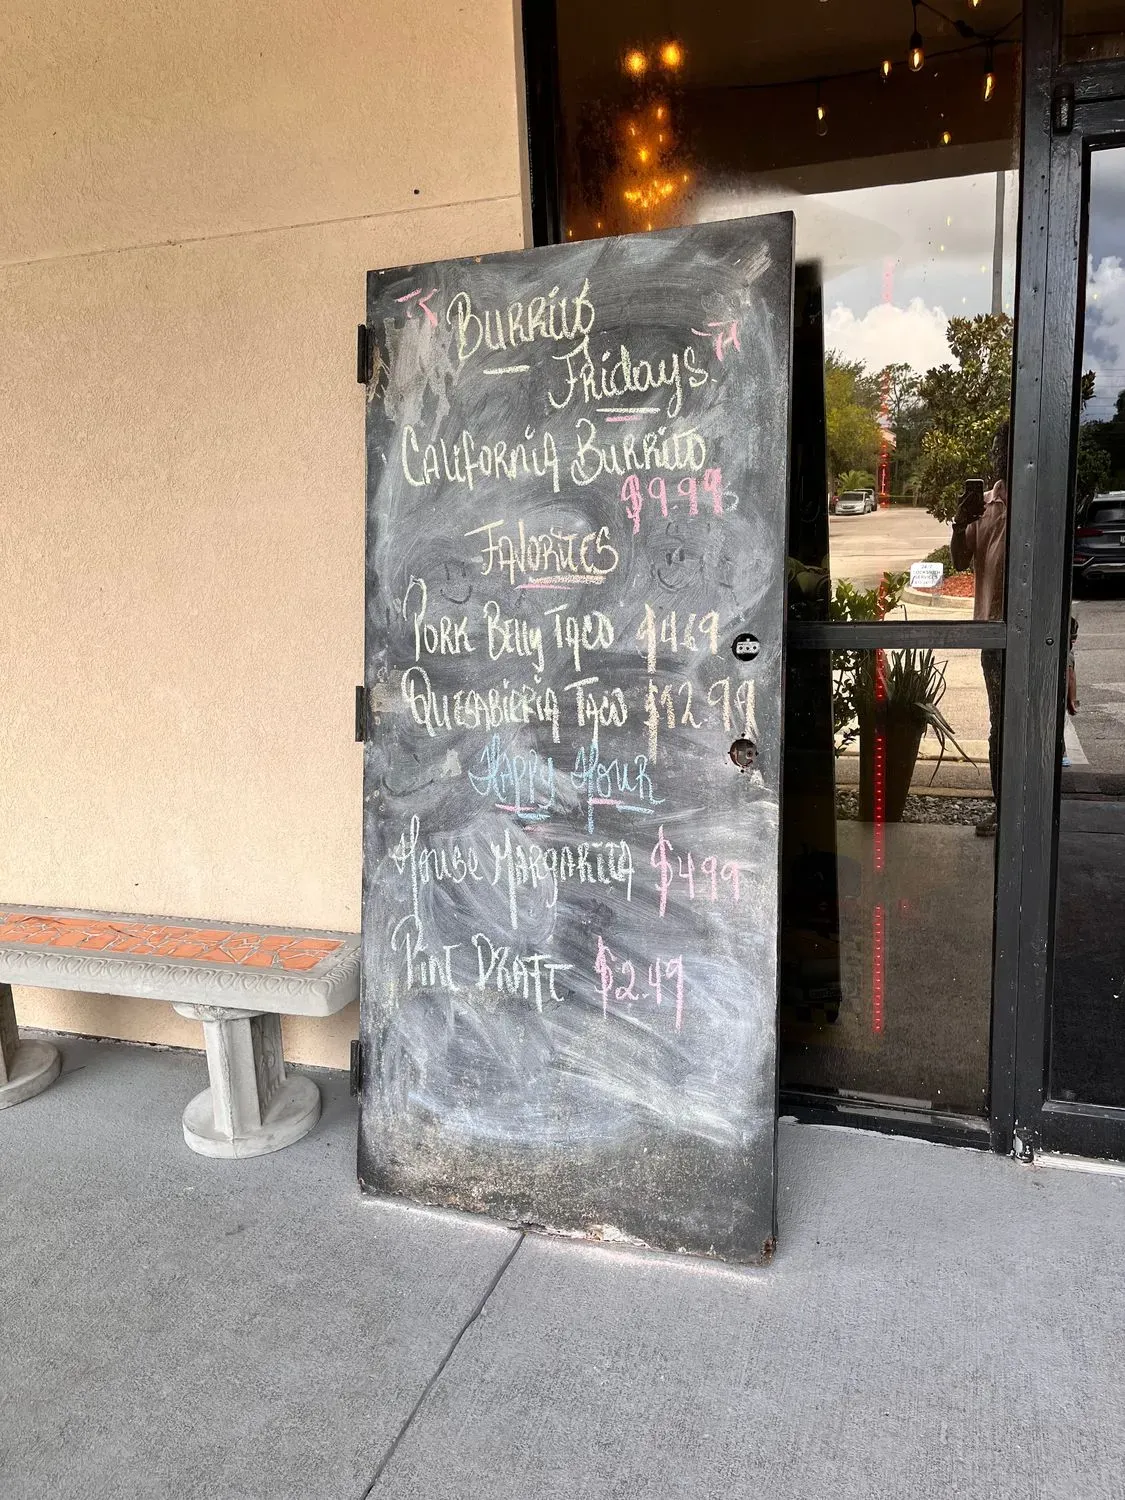 Burrito
Fridays
California Burrito
$9.99
Favorites
Pork Belly Taco $4.69
Quesabirria Taco $12.99
Happy Hour
House Margarita $4.99
Pint Draft $2.49
24/7
LOCKSMITH
SERVICES